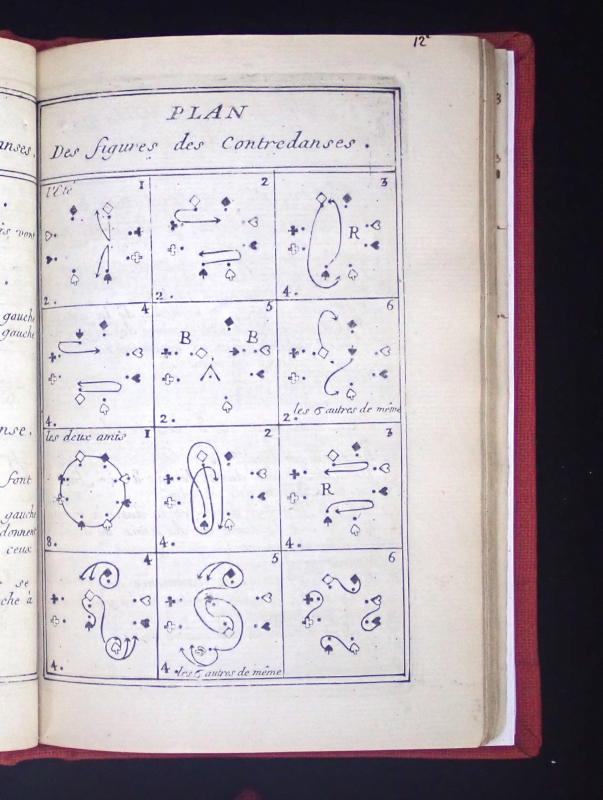 12
PLAN
Des figures des Contredanses.
l'Eté 1 2 3
R
2. 2. 4.
4 5 6
B B
4. 2. 2. les 6 autres de même
les deux amis 1 2 3
R
8. 4. 4.
4 5 6
4. 4. les 6 autres de même
anses.
gauche
gauche
nse.
font
gauche
donnent
ceux
se
che à